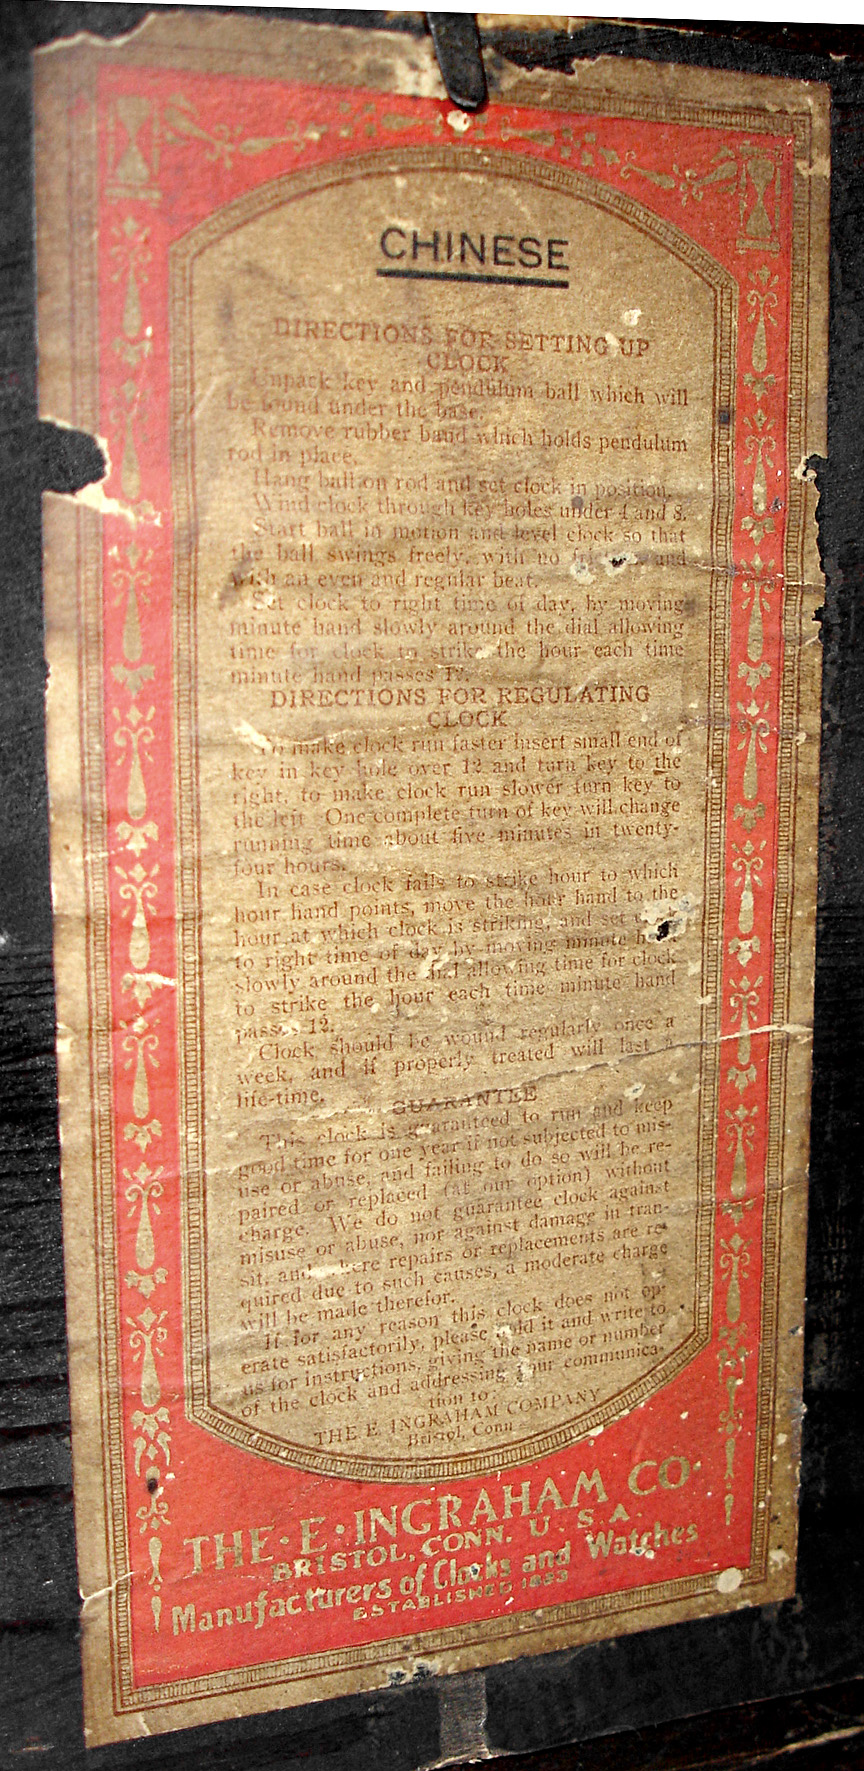 CHINESE
DIRECTIONS FOR SETTING UP
CLOCK
Unpack key and pendulum ball which will
be found under the base.
Remove rubber band which holds pendulum
rod in place.
Hang ball on rod and set clock in position.
Wind clock through key holes under 4 and 8.
Start ball in motion and level clock so that
the ball swings freely, with no and
with an even and regular beat.
Set clock to right time of day, by moving
minute hand slowly around the dial allowing
time for clock to strike the hour each time
minute hand passes 12.
DIRECTIONS FOR REGULATING
CLOCK
To make clock run faster insert small end of
key in key hole over 12 and turn key to the
right, to make clock run slower turn key to
the left. One complete turn of key will change
running time about five minutes in twenty-
four hours.
In case clock fails to strike hour to which
hour hand points, move the hour hand to the
hour at which clock is striking, and set
to right time of day by moving minute hand
slowly around the dial allowing time for clock
to strike the hour each time minute hand
passes 12.
Clock should be wound regularly once a
week, and if properly treated will last a
life-time.
GUARANTEE
This clock is guaranteed to run and keep
good time for one year if not subjected to mis-
use or abuse, and failing to do so will be re-
paired or replaced (at our option) without
charge. We do not guarantee clock against
misuse or abuse, nor against damage in tran-
sit, and where repairs or replacements are re-
quired due to such causes, a moderate charge
will be made therefor.
If for any reason this clock does not op-
erate satisfactorily, please hold it and write to
us for instructions, giving the name or number
of the clock and addressing your communica-
tion to
THE E. INGRAHAM COMPANY
Bristol, Conn
THE·E·INGRAHAM CO·
BRISTOL, CONN. U.S.A.
Manufacturers of Clocks and Watches
ESTABLISHED